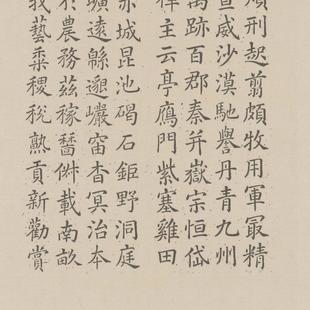 煩刑起翦頗牧用軍㝡精
宣威沙漠馳譽丹青九州
禹跡百郡秦并嶽宗恒岱
禪主云亭鴈門紫塞雞田
赤城昆池碣石鉅野洞庭
曠遠緜邈巖杳冥治本
於農務茲稼穡俶載南畝
我藝黍稷稅熟貢新勸賞